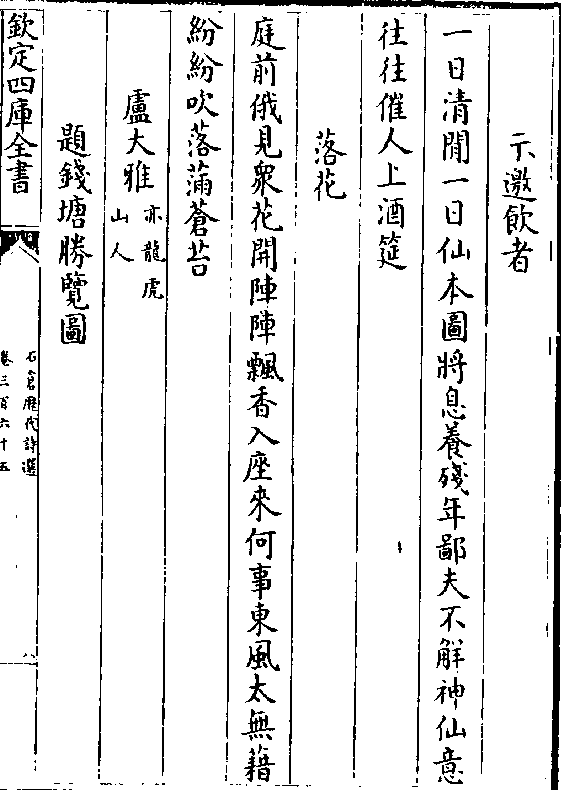 示邀飲者
一日清閒一日仙本圖將息養殘年鄙夫不解神仙意
往往催人上酒筵
落花
庭前俄見衆花開陣陣飄香入座來何事東風太無藉
紛紛吹落滿蒼苔
盧大雅亦龍虎山人
題錢塘勝覽圖
欽定四庫全書
石倉歷代詩選
卷三百六十五
八